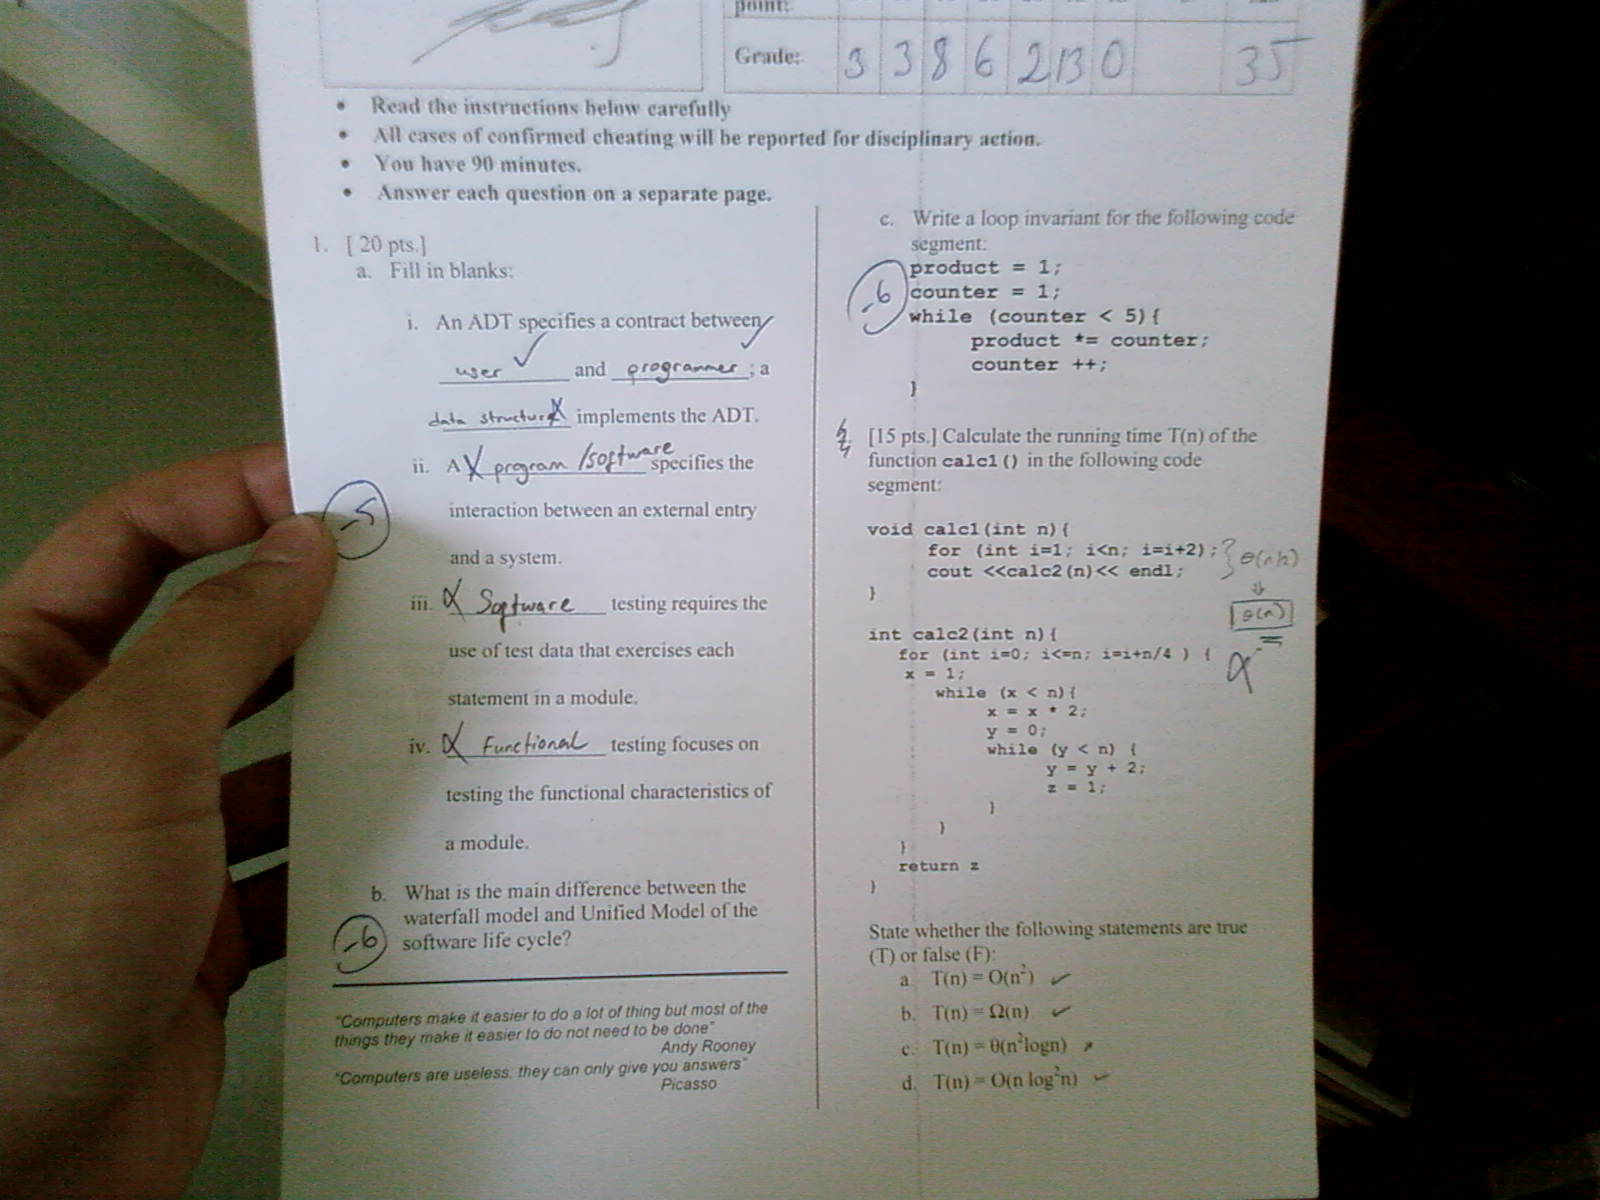 point:
Grade: 3 3 8 6 2 13 0 35
• Read the instructions below carefully
• All cases of confirmed cheating will be reported for disciplinary action.
• You have 90 minutes.
• Answer each question on a separate page.
1. [ 20 pts.]
a. Fill in blanks:
i. An ADT specifies a contract between
user and programmer ; a
data structure implements the ADT.
ii. A program /software specifies the
interaction between an external entry
-5
and a system.
iii. Software testing requires the
use of test data that exercises each
statement in a module.
iv. Functional testing focuses on
testing the functional characteristics of
a module.
b. What is the main difference between the
waterfall model and Unified Model of the
-6 software life cycle?
"Computers make it easier to do a lot of thing but most of the
things they make it easier to do not need to be done"
Andy Rooney
"Computers are useless: they can only give you answers"
Picasso
c. Write a loop invariant for the following code
segment:
product = 1;
-6 counter = 1;
while (counter < 5){
product *= counter;
counter ++;
}
[15 pts.] Calculate the running time T(n) of the
function calc1() in the following code
segment:
void calc1(int n){
for (int i=1; i<n; i=i+2); } θ(n/2)
cout <<calc2(n)<< endl;
}
θ(n)
int calc2(int n){
for (int i=0; i<=n; i=i+n/4 ) {
x = 1;
while (x < n){
x = x * 2;
y = 0;
while (y < n) {
y = y + 2;
z = 1;
}
}
}
return z
}
State whether the following statements are true
(T) or false (F):
a. T(n) = O(n²)
b. T(n) = Ω(n)
c. T(n) = θ(n²logn)
d. T(n) = O(n log²n)